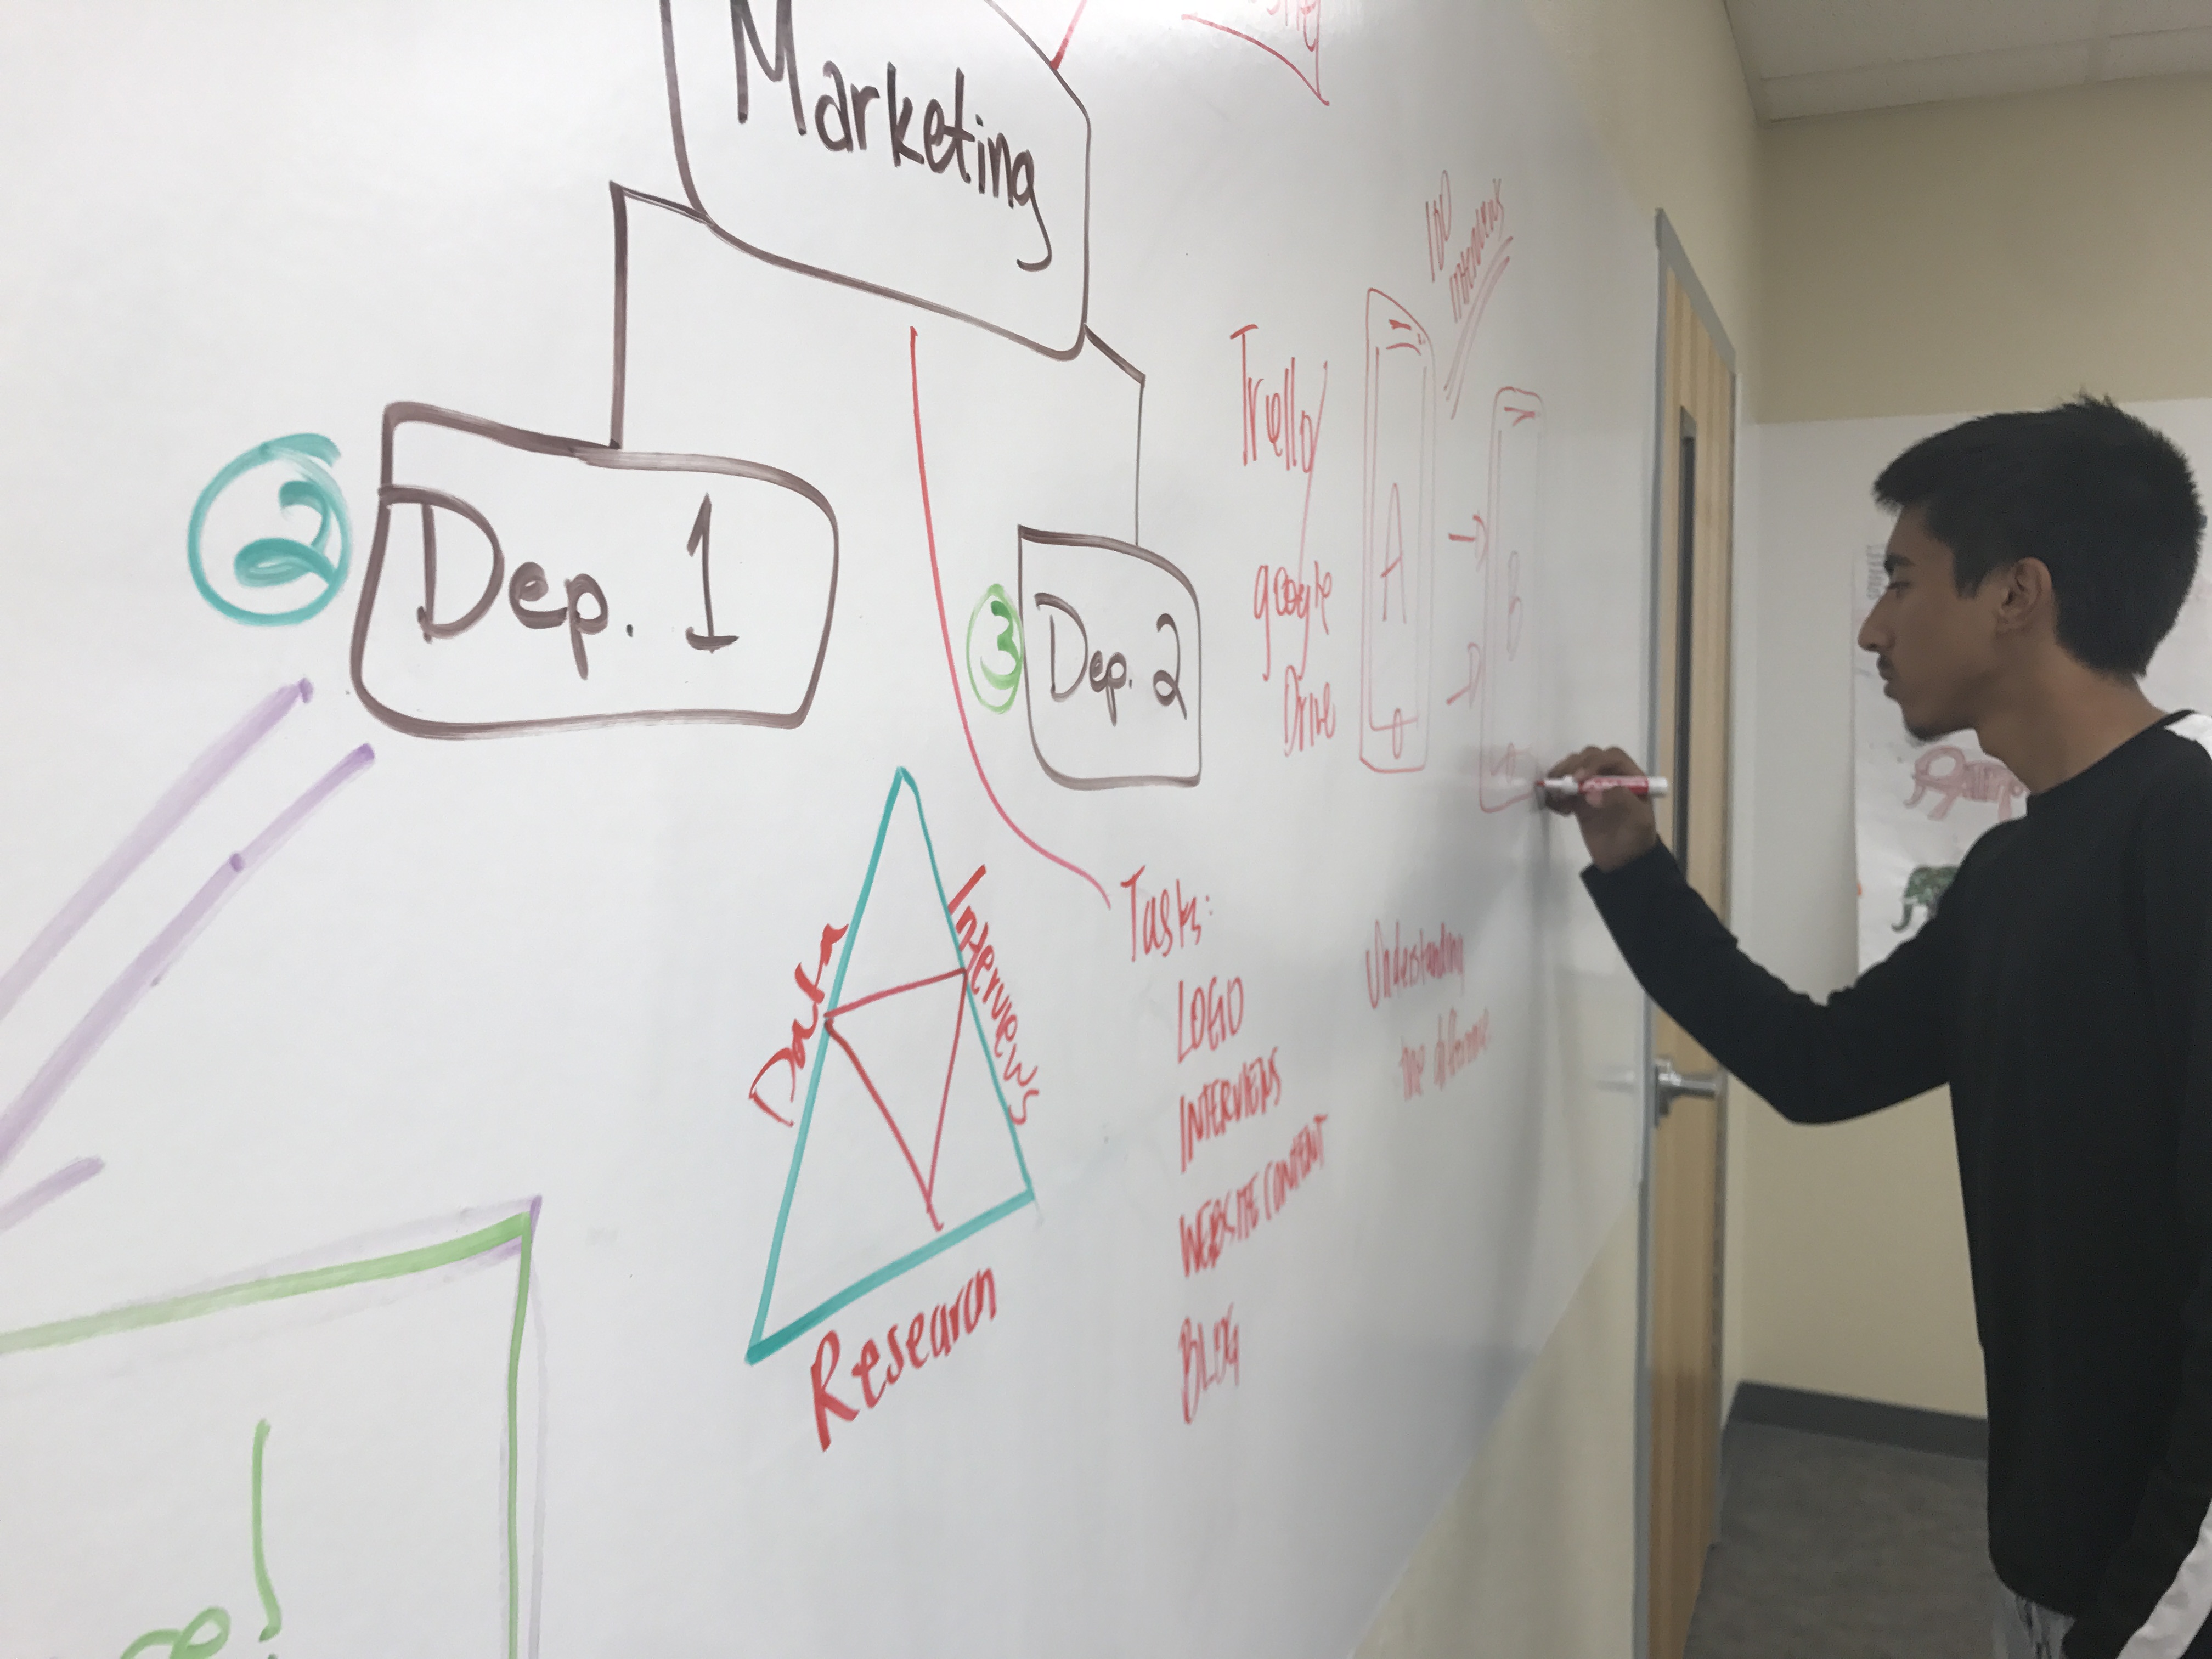 Marketing
2
Dep. 1
3
Dep. 2
Trello/
google
Drive
100
A
B
Data
Interviews
Research
Tasks:
LOGO
INTERVIEWS
WEBSITE CONTENT
BLOG
Understanding
the difference